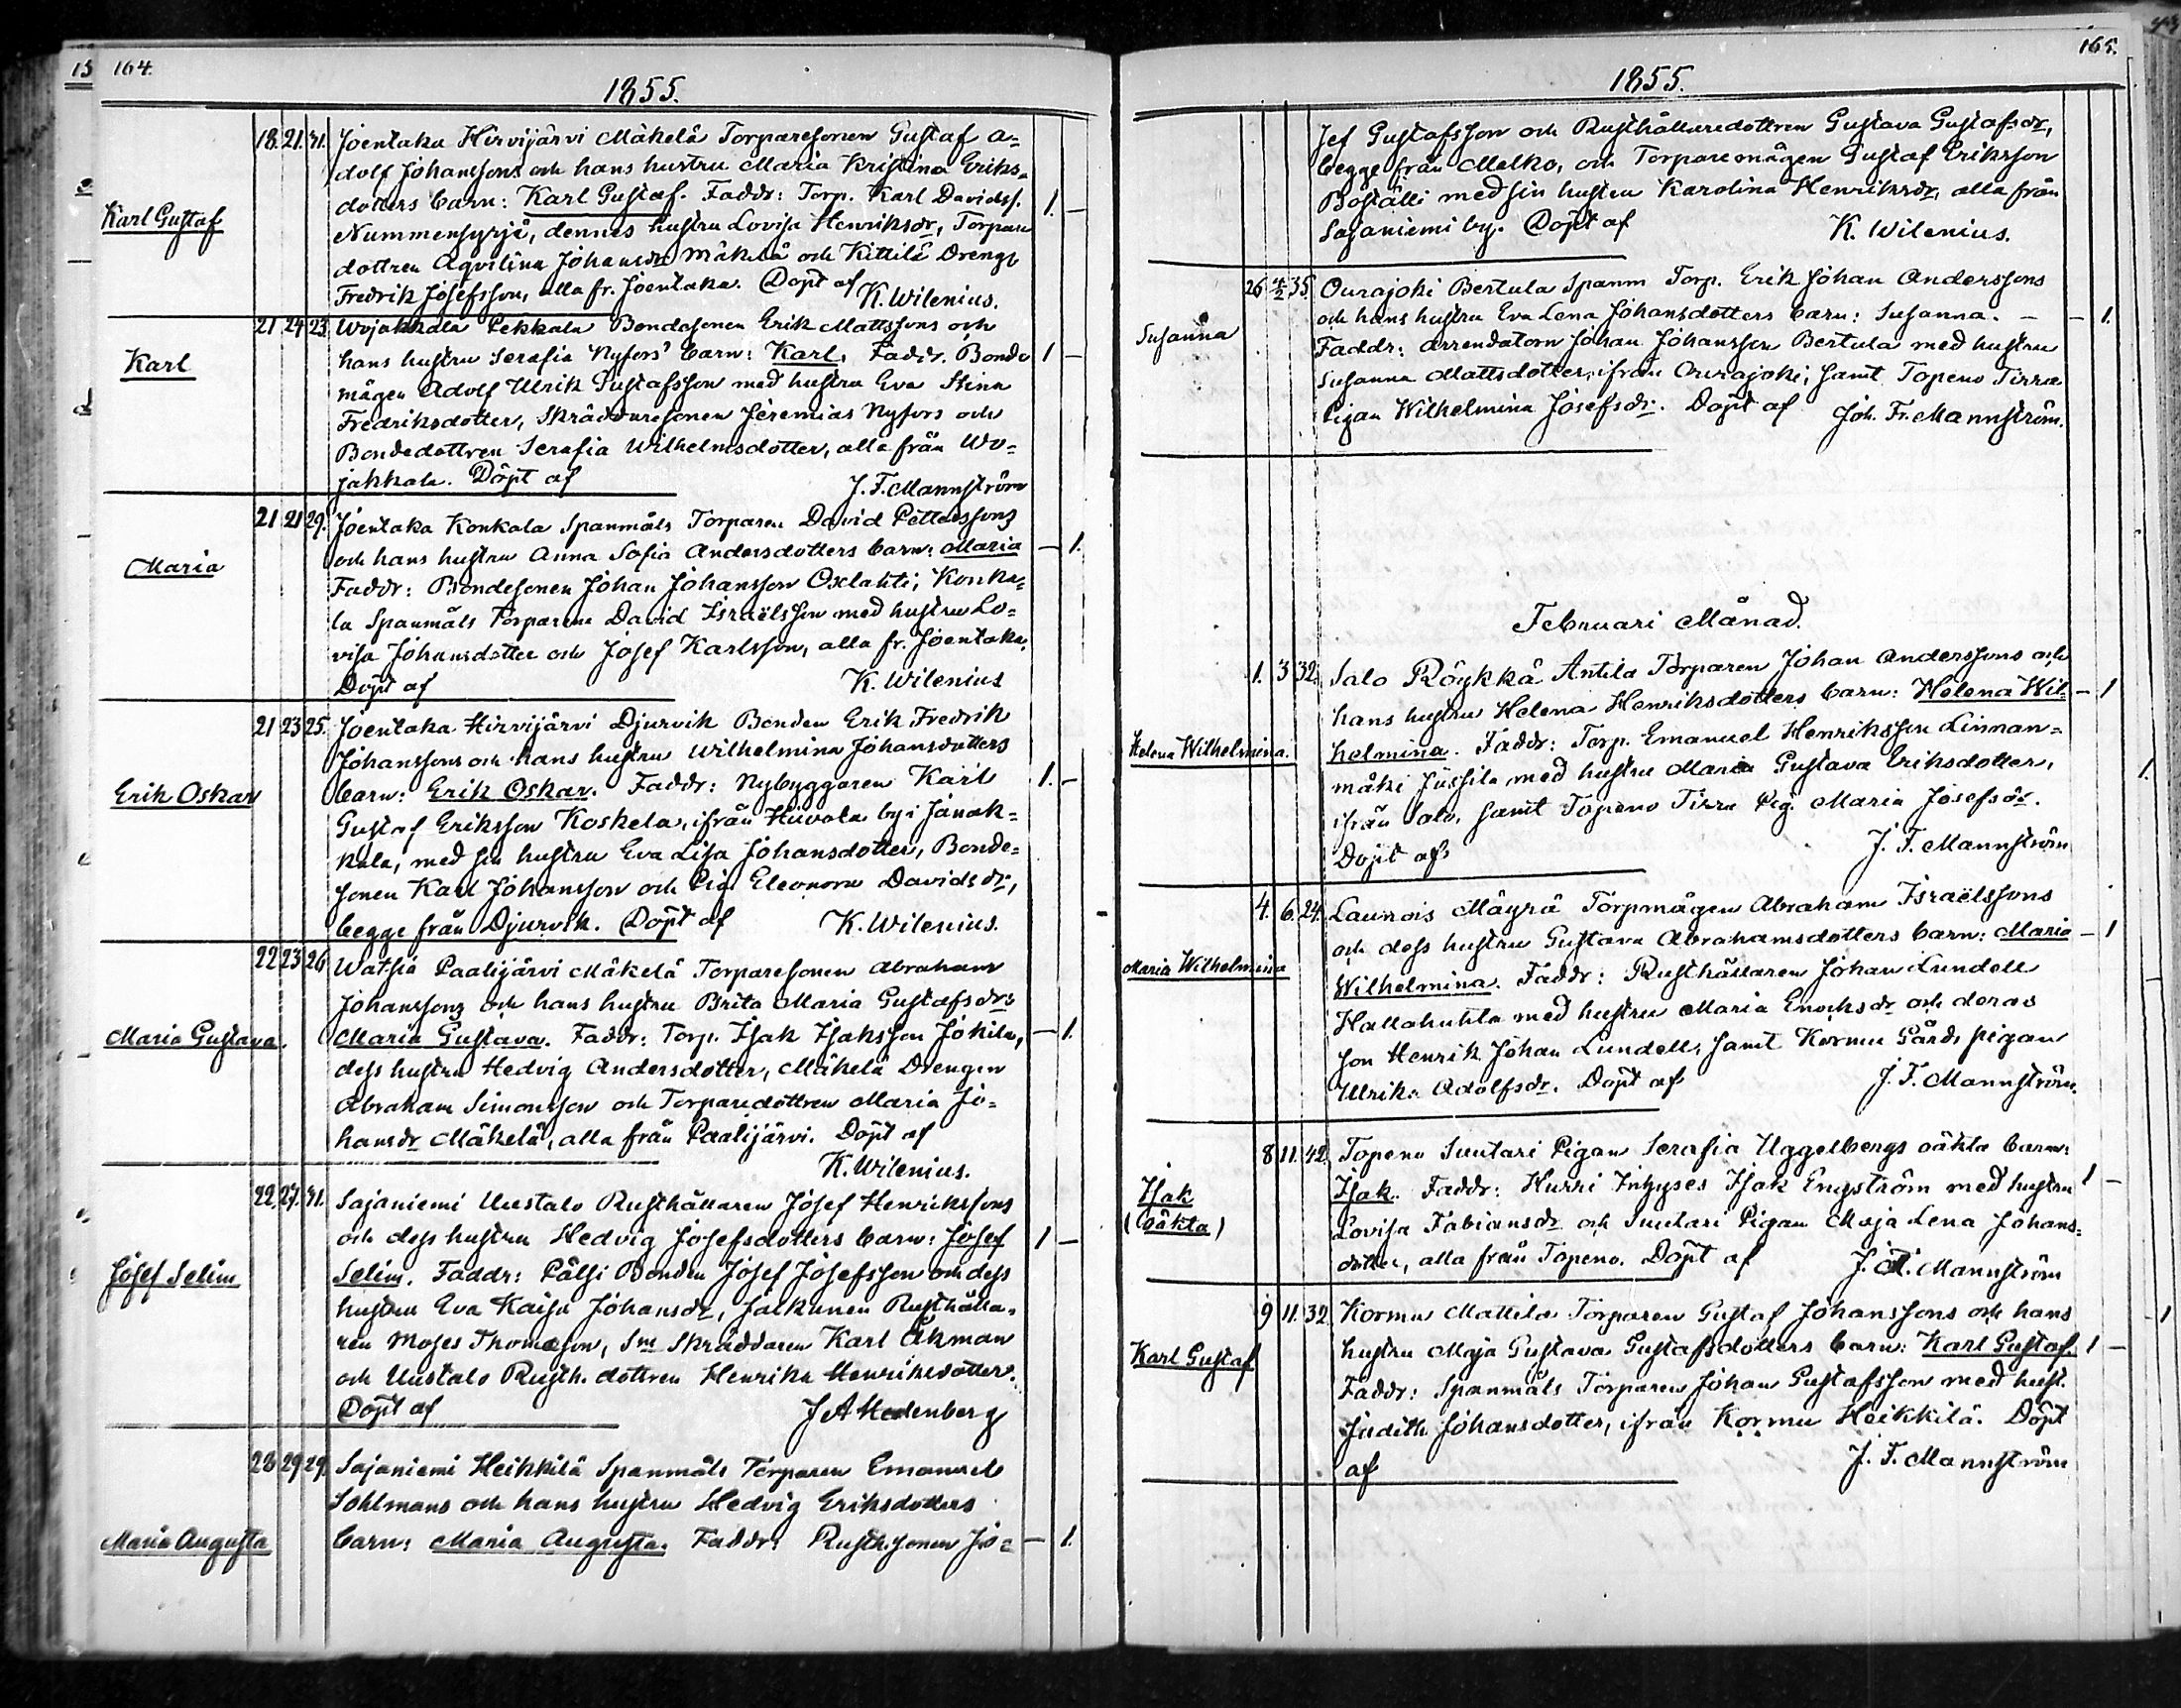 164.
1855.
18. 21. 31. Joentaka Hirvijärvi Mäkelä Torparesonen Gustaf A=
dolf Johanssons och hans hustru Maria Kristina Eriks=
dotters barn: Karl Gustaf. Faddr: Torp. Karl Davidss. 1. —
Karl Gustaf
Nummensyrjä, dennes hustru Lovisa Henriksdr, Torpare
dottren Aqvilina Johansdr Mäkelä och Kittilä Dreng
Fredrik Josefsson, alla fr. Joentaka. Döpt af
K. Wilenius.
21 24 23. Wojakkala Pekkala Bondesonen Erik Mattssons och
Karl
hans hustru Serafia Nyfors' barn: Karl. Faddr. Bonde 1 —
mågen Adolf Ulrik Gustafsson med hustru Eva Stina
Fredriksdotter, Skräddaresonen Jeremias Nyfors och
Bondedottren Serafia Wilhelmsdotter, alla från Wo=
jakkala. Döpt af
J. F. Mannström
21 21 29. Joentaka Konkala Spanmåls Torparen David Petterssons
och hans hustru Anna Sofia Andersdotters barn: Maria — 1.
Maria
Faddr: Bondesonen Johan Johansson Oxlahti; Konka=
la Spanmåls Torparen David Israëlsson med hustru Lo=
visa Johansdotter och Josef Karlsson, alla fr. Joentaka.
Döpt af K. Wilenius
21 23 25. Joentaka Hirvijärvi Djurvik Bonden Erik Fredrik
Johanssons och hans hustru Wilhelmina Johansdotters
Erik Oskar
barn: Erik Oskar. Faddr: Nybyggaren Karl 1. —
Gustaf Eriksson Koskela, ifrån Hiivola by i Janak=
kala, med sin hustru Eva Lisa Johansdotter, Bonde=
sonen Karl Johansson och Pig. Eleonora Davidsdr,
begge från Djurvik. Döpt af K. Wilenius.
22 23 26 Watsia Paalijärvi Mäkelä Torparesonen Abraham
Johanssons och hans hustru Brita Maria Gustafsdrs
Maria Gustava.
Maria Gustava. Faddr: Torp. Isak Isaksson Jokila, — 1.
dess hustru Hedvig Andersdotter, Mäkelä Drengen
Abraham Simonsson och Torparedottren Maria Jo=
hansdr Mäkelä, alla från Paalijärvi. Döpt af
K. Wilenius.
22. 27. 31. Sajaniemi Uustalo Rusthållaren Josef Henrikssons
och dess hustru Hedvig Josefsdotters barn: Josef 1 —
Josef Selim
Selim. Faddr: Pälsi Bonden Josef Josefsson och dess
hustru Eva Kaisa Johansdr, Jalkanen Rusthålla=
ren Moses Thomasson, Sne Skräddaren Karl Åkman
och Uustalo Rusth. dottren Henrika Henriksdotter.
Döpt af J A Hedenberg
28 29 29. Sajaniemi Heikkilä Spanmåls Torparen Emanuel
Sohlmans och hans hustru Hedvig Eriksdotters
Maria Augusta
barn: Maria Augusta. Faddr: Rusth.sonen Jo= — 1.
165.
1855.
sef Gustafsson och Rusthållaredottren Gustava Gustafsdr,
begge från Melko, och Torparemågen Gustaf Eriksson
Boställi med sin hustru Karolina Henriksdr, alla från
Sajaniemi by. Döpt af K. Wilenius.
26 4/2 35. Ourajoki Bertula Spanm Torp. Erik Johan Anderssons
och hans hustru Eva Lena Johansdotters barn: Susanna. — — 1.
Susanna
Faddr: Arrendatorn Johan Johansson Bertula med hustru
Susanna Mattsdotter, ifrån Ourajoki; samt Topeno Tirra
Pigan Wilhelmina Josefsdr. Döpt af Joh. Fr. Mannström.
Februari Månad.
1. 3 32. Salo Röykkä Antila Torparen Johan Anderssons och
hans hustru Helena Henriksdotters barn: Helena Wil= — 1
Helena Wilhelmina.
helmina. Faddr: Torp. Emanuel Henriksson Linnan=
mäki Jussila med hustru Maria Gustava Eriksdotter,
ifrån Salo, samt Topeno Tirra Pig. Maria Josefsdr.
Döpt af J. F. Mannström
4. 6. 24. Launois Mäyrä Torpmågen Abraham Israëlssons
och dess hustru Gustava Abrahamsdotters barn: Maria — 1
Maria Wilhelmina
Wilhelmina. Faddr: Rusthållaren Johan Lundell
Hallakuhla med hustru Maria Enochsdr och deras
son Henrik Johan Lundell, samt Kormu Gårds pigan
Ulrika Adolfsdr. Döpt af J. F. Mannström.
8 11. 42. Topeno Suutari Pigan Serafia Uggelbergs oäkta barn:
Isak
(oäkta)
Isak. Faddr: Hurri Inhyses Isak Engström med hustru 1 —
Lovisa Fabiansdr och Suutari Pigan Maja Lena Johans=
dotter, alla från Topeno. Döpt af J. F. Mannström
9 11. 32. Kormu Mattila Torparen Gustaf Johanssons och hans
Karl Gustaf
hustru Maja Gustava Gustafsdotters barn: Karl Gustaf. 1 —
Faddr: Spanmåls Torparen Johan Gustafsson med hust.
Judith Johansdotter, ifrån Kormu Heikkilä. Döpt
af J. F. Mannström